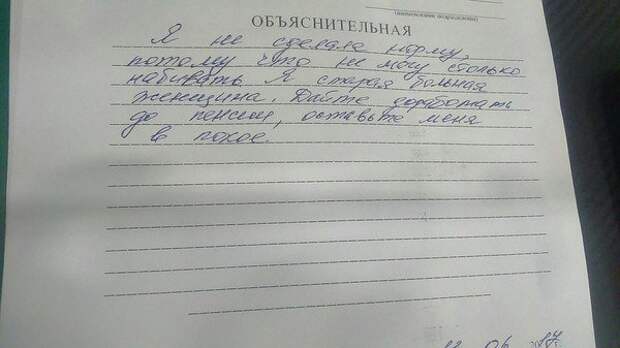 (наименование подразделения)
ОБЪЯСНИТЕЛЬНАЯ
Я не сделала норму,
потому что не могу столько
набивать Я старая больная
женщина. Дайте доработать
до пенсии, оставьте меня
в покое.